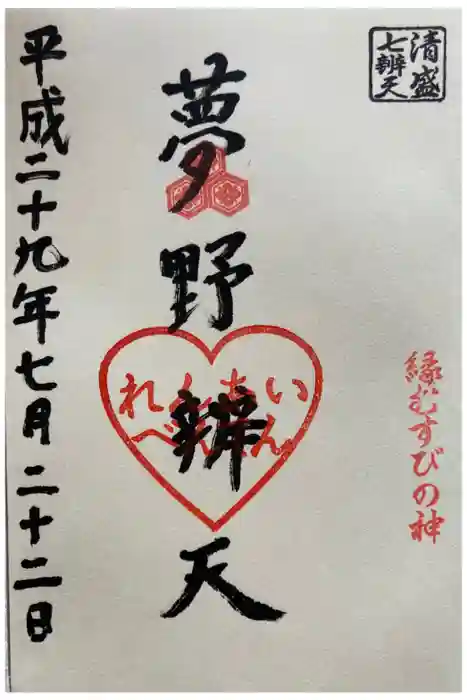 清盛
七辨天
縁むすびの神
夢野辨天
れんあい
べんてん
平成二十九年七月二十二日